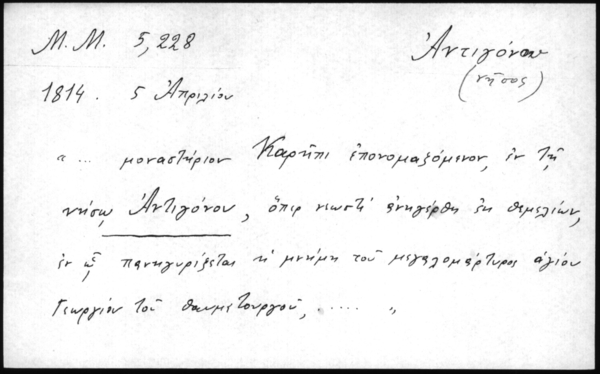 Μ.Μ. 5,228
Ἀντιγόνου
(νῆσος)
1814. 5 Ἀπριλίου
"... μοναστήριον Καρῆπι ἐπονομαζόμενον, ἐν τῇ
νήσῳ Ἀντιγόνου, ὅπερ νεωστί ἀνηγέρθη ἐκ θεμελίων,
ἐν ᾧ πανηγυρίζεται ἡ μνήμη τοῦ μεγαλομάρτυρος ἁγίου
Γεωργίου τοῦ θαυματουργοῦ, ..... "